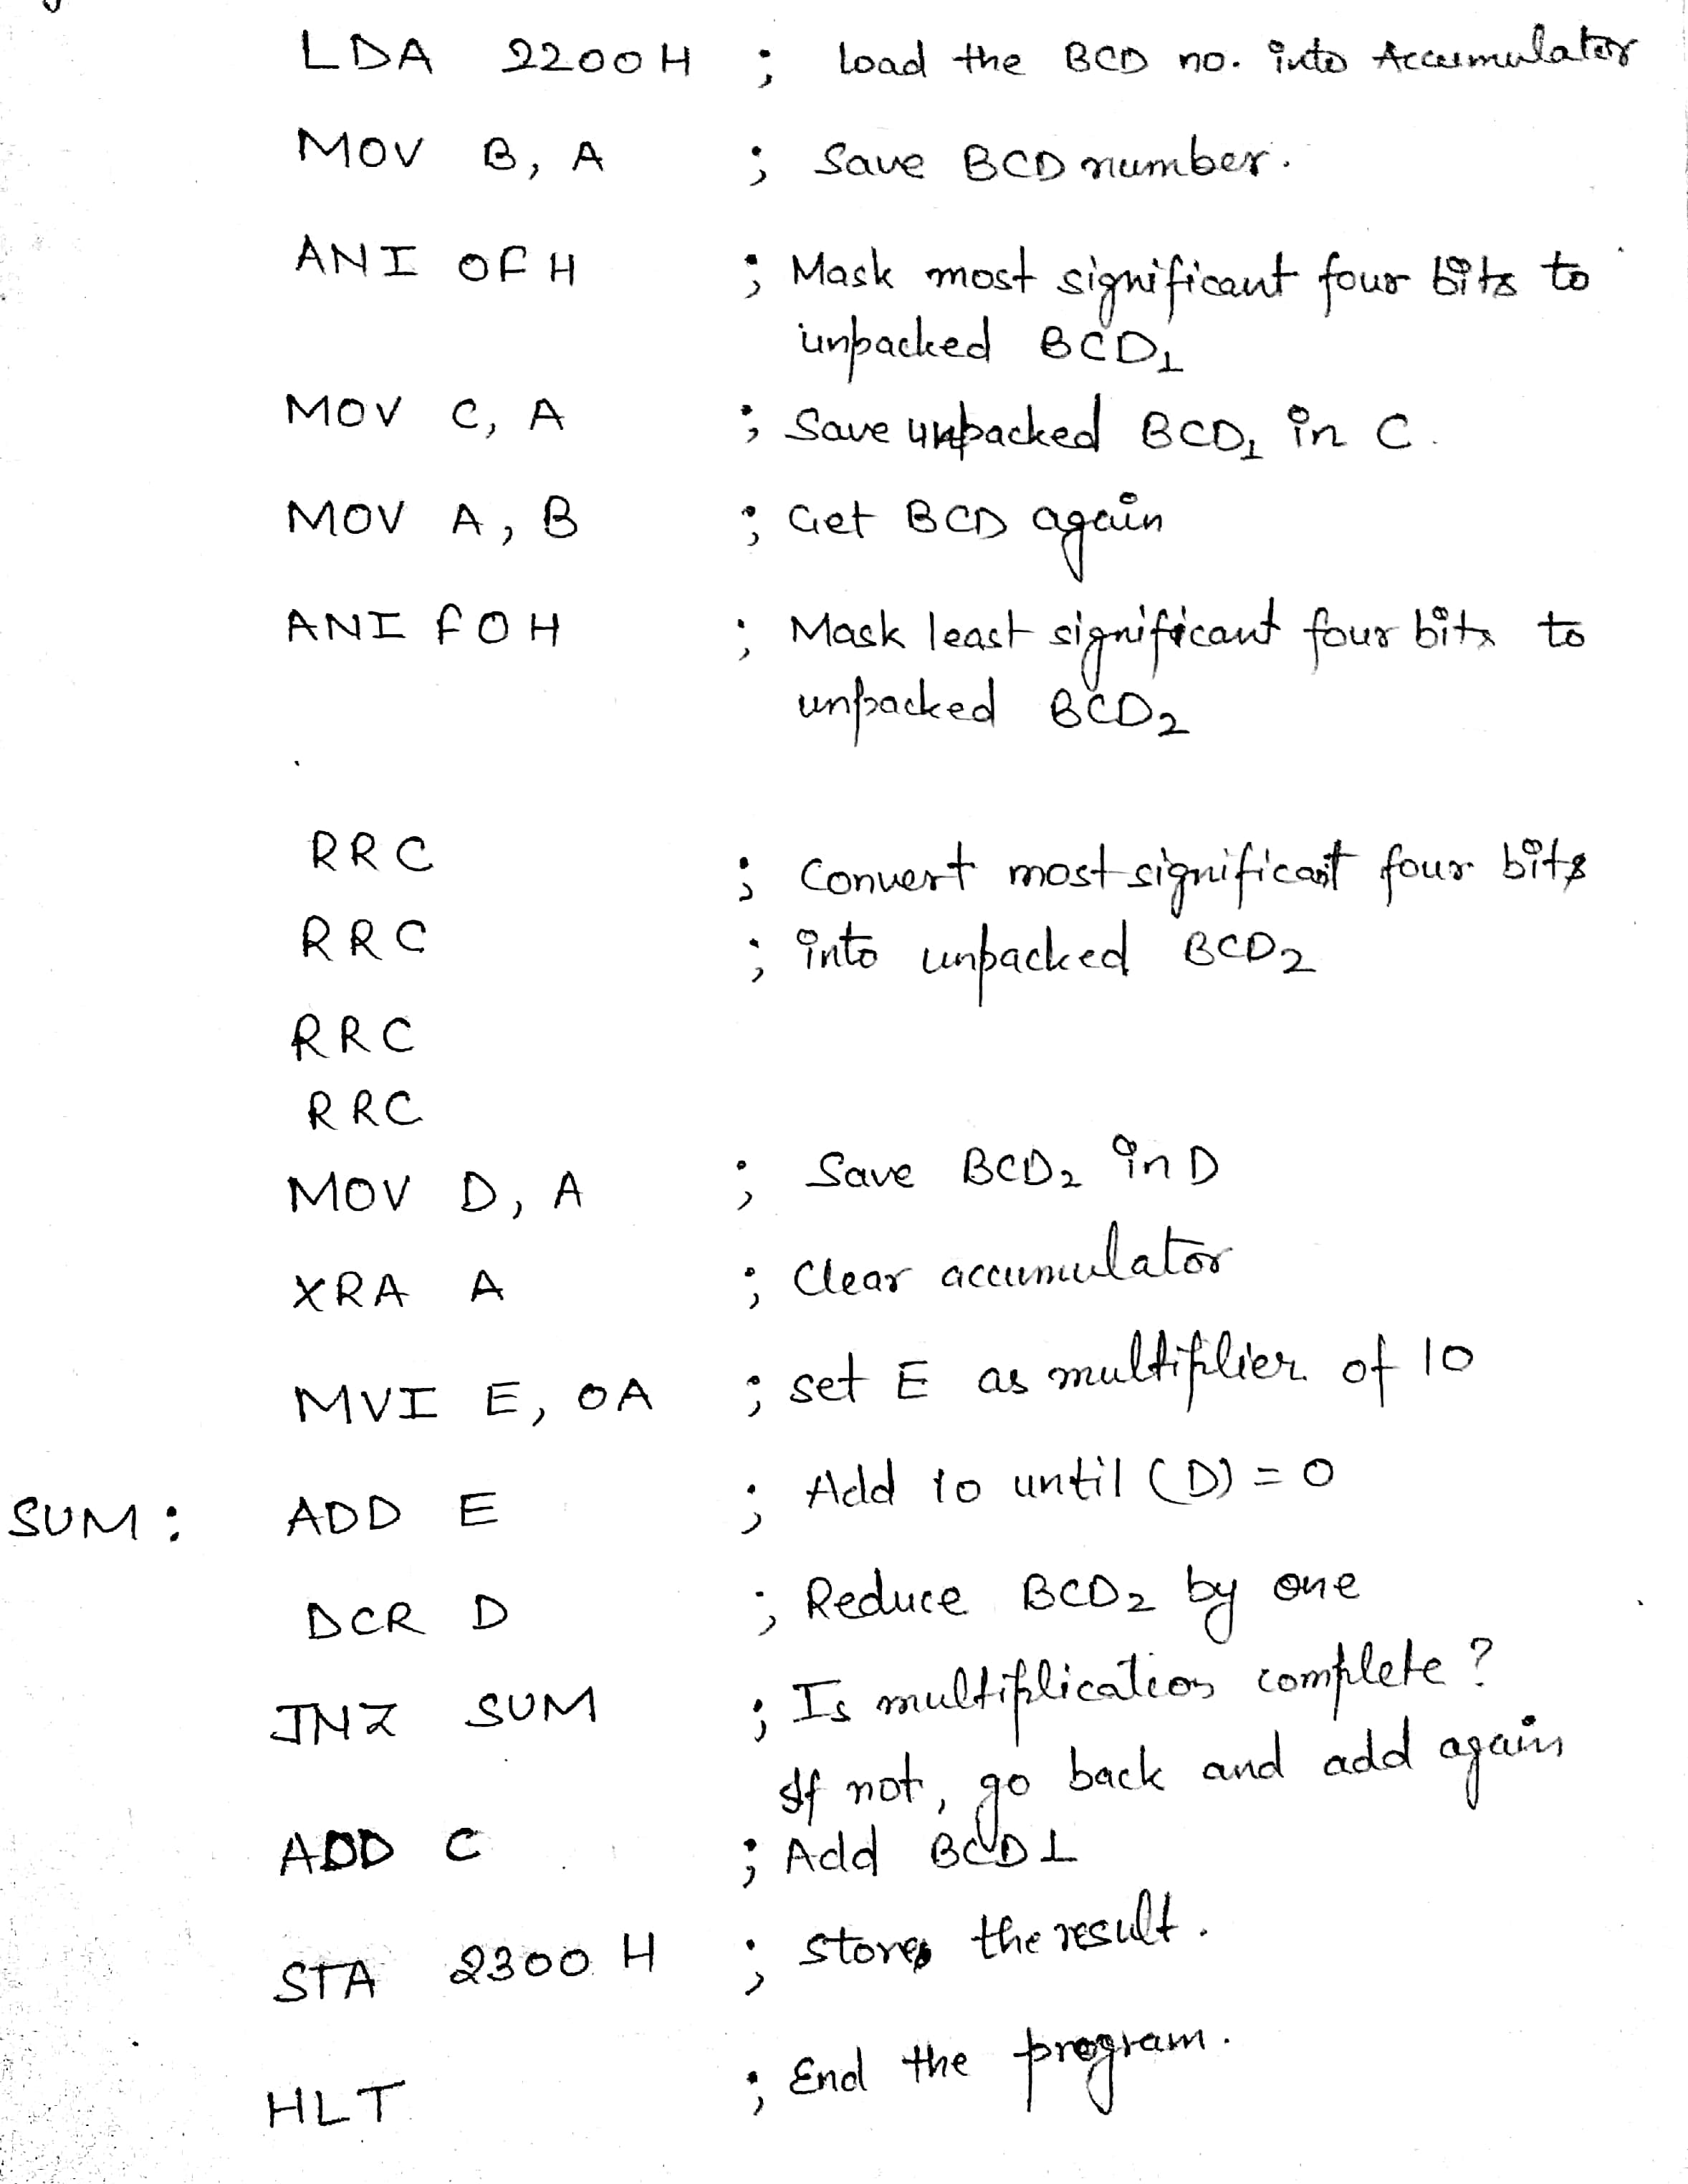 LDA 2200H ; Load the BCD no. into Accumulator
MOV B, A ; Save BCD number.
ANI 0FH ; Mask most significant four bits to
unpacked BCD1
MOV C, A ; Save unpacked BCD1 in C.
MOV A, B ; Get BCD again
ANI F0H ; Mask least significant four bits to
unpacked BCD2
RRC ; Convert most significant four bits
RRC ; into unpacked BCD2
RRC
RRC
MOV D, A ; Save BCD2 in D
XRA A ; Clear accumulator
MVI E, 0A ; set E as multiplier of 10
SUM: ADD E ; Add 10 until (D) = 0
DCR D ; Reduce BCD2 by one
JNZ SUM ; Is multiplication complete?
If not, go back and add again
ADD C ; Add BCD1
STA 2300 H ; Stores the result.
HLT ; End the program.